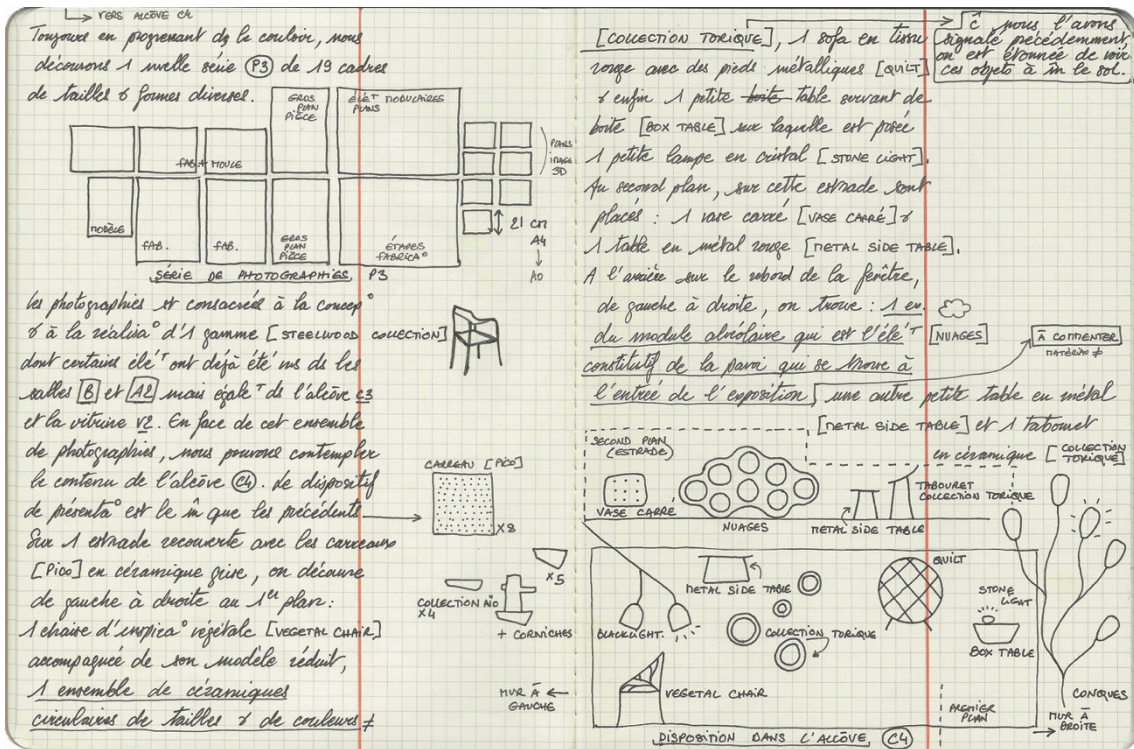 VERS ALCÔVE C4
Toujours en progressant ds le couloir, nous
découvrons 1 nvelle série P3 de 19 cadres
de tailles & formes diverses.
GROS
PLAN
PIÈCE
ÉLÉT MODULAIRES
PLANS
FAB. + MOULE
PLANS
IMAGE
3D
MODÈLE
FAB.
FAB.
GROS
PLAN
PIÈCE
ÉTAPES
FABRICA°
21 cm
A4
A0
SÉRIE DE PHOTOGRAPHIES P3
Les photographies st consacrées à la concep°
& à la réalisa° d'1 gamme [STEELWOOD COLLECTION]
dont certains éléT ont déjà été vus ds les
salles B et A2 mais égaleT ds l'alcôve C3
et la vitrine V2. En face de cet ensemble
de photographies, nous pouvons contempler
le contenu de l'alcôve C4. Le dispositif
de présenta° est le m̂ que les précédents
Sur 1 estrade recouverte avec les carreaux
[PICO] en céramique grise, on découvre
de gauche à droite au 1er plan :
1 chaise d'inspira° végétale [VEGETAL CHAIR]
accompagnée de son modèle réduit,
1 ensemble de céramiques
circulaires de tailles & de couleurs ≠
CARREAU [PICO]
X8
X5
COLLECTION AÏO
X4
+ CORNICHES
MUR À
GAUCHE
[COLLECTION TORIQUE], 1 sofa en tissu
rouge avec des pieds métalliques [QUILT]
& enfin 1 petite boite table servant de
boite [BOX TABLE] sur laquelle est posée
1 petite lampe en cristal [STONE LIGHT].
Au second plan, sur cette estrade sont
placés : 1 vase carré [VASE CARRÉ] &
1 table en métal rouge [METAL SIDE TABLE].
A l'arrière sur le rebord de la fenêtre,
de gauche à droite, on trouve : 1 ex.
du module alvéolaire qui est l'éléT [NUAGES]
constitutif de la paroi qui se trouve à
l'entrée de l'exposition, une autre petite table en métal
[METAL SIDE TABLE] et 1 tabouret
en céramique [COLLECTION
TORIQUE]
ĉ nous l'avons
signalé précédemment
on est étonnée de voir
ces objets à m̂ le sol.
À COMMENTER
MATÉRIAU ≠
SECOND PLAN
(ESTRADE)
VASE CARRÉ
NUAGES
METAL SIDE TABLE
TABOURET
COLLECTION TORIQUE
METAL SIDE TABLE
QUILT
STONE
LIGHT
BLACKLIGHT.
COLLECTION TORIQUE
BOX TABLE
VEGETAL CHAIR
PREMIER
PLAN
CONQUES
MUR À
DROITE
DISPOSITION DANS L'ALCÔVE C4